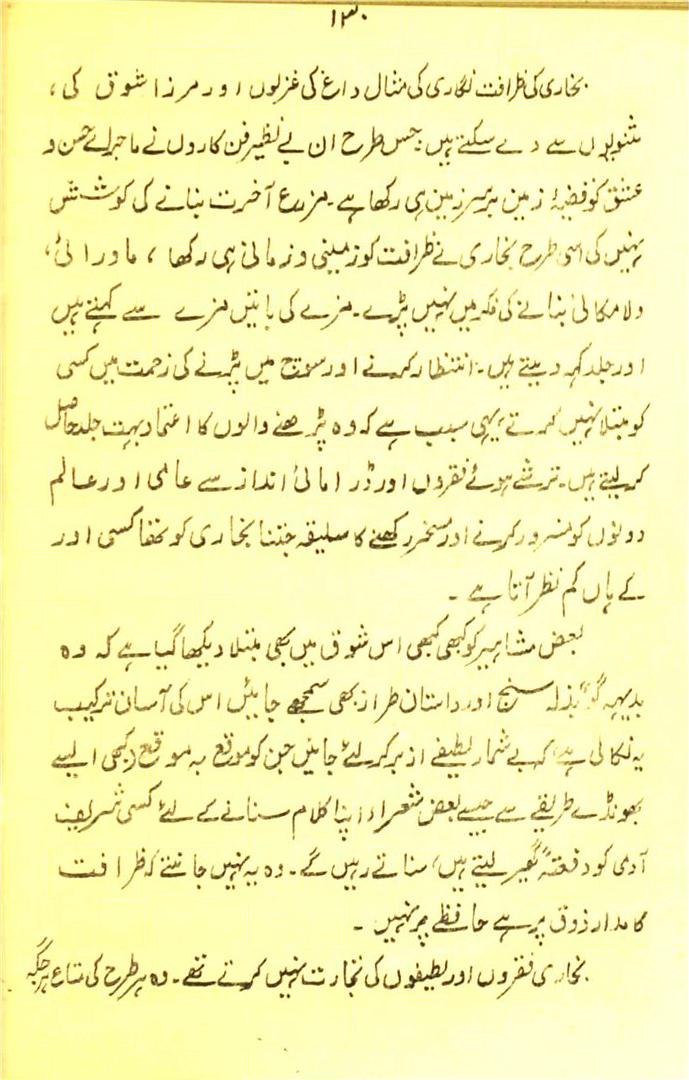 ۱۳۰
بخاری کی ظرافت نگاری کی مثال داغ کی غزلوں اور مرزا شوق کی،
مثنویوں سے دے سکتے ہیں۔ جس طرح ان بے نظیر فن کاروں نے ماجرائے حسن و
عشق کو قضیۂ زمین برسر زمین ہی رکھا ہے۔ مزرع آخرت بنانے کی کوشش
نہیں کی اسی طرح بخاری نے ظرافت کو زمینی و زمانی ہی رکھا، ماورائی،
ولامکانی بنانے کی فکر میں نہیں پڑے۔ مزے کی باتیں مزے سے کہتے ہیں
اور جلد کہہ دیتے ہیں۔ انتظار کرنے اور سوچ میں پڑنے کی زحمت میں کسی
کو مبتلا نہیں کرتے، یہی سبب ہے کہ وہ پڑھنے والوں کا اعتماد بہت جلد حاصل
کر لیتے ہیں۔ ترشے ہوئے فقروں اور ڈرامائی انداز سے عامی اور عالم
دونوں کو مسرور کرنے اور مسخر رکھنے کا سلیقہ جتنا بخاری کو تھا کسی اور
کے ہاں کم نظر آتا ہے۔
بعض مشاہیر کو کبھی کبھی اس شوق میں بھی مبتلا دیکھا گیا ہے کہ وہ
بدیہہ گو، بذلہ سنج اور داستان طراز بھی سمجھے جائیں اس کی آسان ترکیب
یہ نکالی ہے، کہ بے شمار لطیفے ازبر کر لئے جائیں جن کو موقع بہ موقع (کبھی ایسے
بھونڈے طریقے سے جیسے بعض شعراء اپنا کلام سنانے کے لئے کسی شریف
آدمی کو دفعتہً گھیر لیتے ہیں) سناتے رہیں گے۔ وہ یہ نہیں جانتے کہ ظرافت
کا مدار ذوق پر ہے حافظے پر نہیں۔
بخاری فقروں اور لطیفوں کی تجارت نہیں کرتے تھے۔ وہ ہر طرح کی متاع ہر جگہ